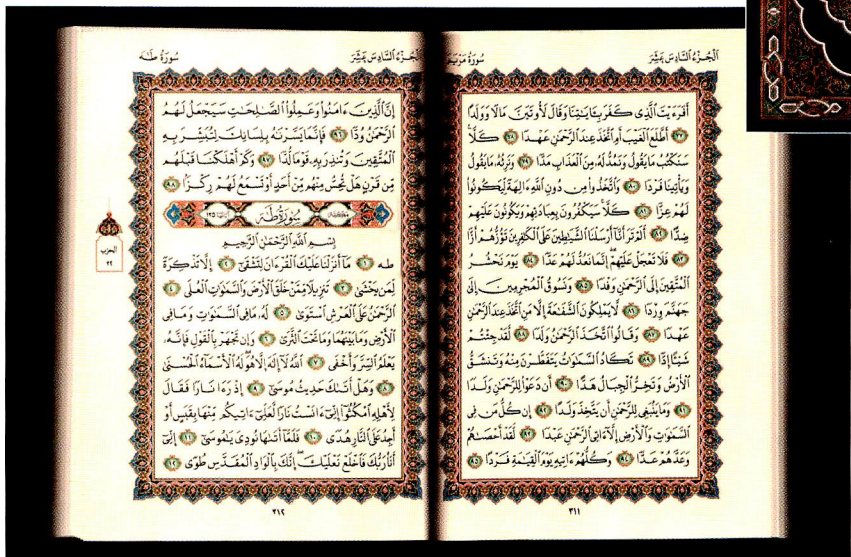 الجُزْءُ السَّادِسَ عَشَرَ
سُورَةُ مَرْيَمَ
أَفَرَءَيْتَ ٱلَّذِى كَفَرَ بِـَٔايَـٰتِنَا وَقَالَ لَأُوتَيَنَّ مَالًا وَوَلَدًا
٧٧ أَطَّلَعَ ٱلْغَيْبَ أَمِ ٱتَّخَذَ عِندَ ٱلرَّحْمَـٰنِ عَهْدًا ٧٨ كَلَّا
سَنَكْتُبُ مَا يَقُولُ وَنَمُدُّ لَهُۥ مِنَ ٱلْعَذَابِ مَدًّا ٧٩ وَنَرِثُهُۥ مَا يَقُولُ
وَيَأْتِينَا فَرْدًا ٨٠ وَٱتَّخَذُوا۟ مِن دُونِ ٱللَّهِ ءَالِهَةً لِّيَكُونُوا۟
لَهُمْ عِزًّا ٨١ كَلَّا سَيَكْفُرُونَ بِعِبَادَتِهِمْ وَيَكُونُونَ عَلَيْهِمْ
ضِدًّا ٨٢ أَلَمْ تَرَ أَنَّآ أَرْسَلْنَا ٱلشَّيَـٰطِينَ عَلَى ٱلْكَـٰفِرِينَ تَؤُزُّهُمْ أَزًّا
٨٣ فَلَا تَعْجَلْ عَلَيْهِمْ إِنَّمَا نَعُدُّ لَهُمْ عَدًّا ٨٤ يَوْمَ نَحْشُرُ
ٱلْمُتَّقِينَ إِلَى ٱلرَّحْمَـٰنِ وَفْدًا ٨٥ وَنَسُوقُ ٱلْمُجْرِمِينَ إِلَىٰ
جَهَنَّمَ وِرْدًا ٨٦ لَّا يَمْلِكُونَ ٱلشَّفَـٰعَةَ إِلَّا مَنِ ٱتَّخَذَ عِندَ ٱلرَّحْمَـٰنِ
عَهْدًا ٨٧ وَقَالُوا۟ ٱتَّخَذَ ٱلرَّحْمَـٰنُ وَلَدًا ٨٨ لَّقَدْ جِئْتُمْ
شَيْـًٔا إِدًّا ٨٩ تَكَادُ ٱلسَّمَـٰوَٰتُ يَتَفَطَّرْنَ مِنْهُ وَتَنشَقُّ
ٱلْأَرْضُ وَتَخِرُّ ٱلْجِبَالُ هَدًّا ٩٠ أَن دَعَوْا۟ لِلرَّحْمَـٰنِ وَلَدًا
٩١ وَمَا يَنۢبَغِى لِلرَّحْمَـٰنِ أَن يَتَّخِذَ وَلَدًا ٩٢ إِن كُلُّ مَن فِى
ٱلسَّمَـٰوَٰتِ وَٱلْأَرْضِ إِلَّآ ءَاتِى ٱلرَّحْمَـٰنِ عَبْدًا ٩٣ لَّقَدْ أَحْصَىٰهُمْ
وَعَدَّهُمْ عَدًّا ٩٤ وَكُلُّهُمْ ءَاتِيهِ يَوْمَ ٱلْقِيَـٰمَةِ فَرْدًا ٩٥
٣١١
الجُزْءُ السَّادِسَ عَشَرَ
سُورَةُ طٰهٰ
إِنَّ ٱلَّذِينَ ءَامَنُوا۟ وَعَمِلُوا۟ ٱلصَّـٰلِحَـٰتِ سَيَجْعَلُ لَهُمُ
ٱلرَّحْمَـٰنُ وُدًّا ٩٦ فَإِنَّمَا يَسَّرْنَـٰهُ بِلِسَانِكَ لِتُبَشِّرَ بِهِ
ٱلْمُتَّقِينَ وَتُنذِرَ بِهِۦ قَوْمًا لُّدًّا ٩٧ وَكَمْ أَهْلَكْنَا قَبْلَهُم
مِّن قَرْنٍ هَلْ تُحِسُّ مِنْهُم مِّنْ أَحَدٍ أَوْ تَسْمَعُ لَهُمْ رِكْزًۢا ٩٨
مكية سُورَةُ طٰهٰ آياتها ١٣٥
بِسْمِ ٱللَّهِ ٱلرَّحْمَـٰنِ ٱلرَّحِيمِ
طه ١ مَآ أَنزَلْنَا عَلَيْكَ ٱلْقُرْءَانَ لِتَشْقَىٰٓ ٢ إِلَّا تَذْكِرَةً
لِّمَن يَخْشَىٰ ٣ تَنزِيلًا مِّمَّنْ خَلَقَ ٱلْأَرْضَ وَٱلسَّمَـٰوَٰتِ ٱلْعُلَى ٤
ٱلرَّحْمَـٰنُ عَلَى ٱلْعَرْشِ ٱسْتَوَىٰ ٥ لَهُۥ مَا فِى ٱلسَّمَـٰوَٰتِ وَمَا فِى
ٱلْأَرْضِ وَمَا بَيْنَهُمَا وَمَا تَحْتَ ٱلثَّرَىٰ ٦ وَإِن تَجْهَرْ بِٱلْقَوْلِ فَإِنَّهُۥ
يَعْلَمُ ٱلسِّرَّ وَأَخْفَى ٧ ٱللَّهُ لَآ إِلَـٰهَ إِلَّا هُوَ لَهُ ٱلْأَسْمَآءُ ٱلْحُسْنَىٰ
٨ وَهَلْ أَتَىٰكَ حَدِيثُ مُوسَىٰٓ ٩ إِذْ رَءَا نَارًا فَقَالَ
لِأَهْلِهِ ٱمْكُثُوٓا۟ إِنِّىٓ ءَانَسْتُ نَارًا لَّعَلِّىٓ ءَاتِيكُم مِّنْهَا بِقَبَسٍ أَوْ
أَجِدُ عَلَى ٱلنَّارِ هُدًى ١٠ فَلَمَّآ أَتَىٰهَا نُودِىَ يَـٰمُوسَىٰٓ ١١ إِنِّىٓ
أَنَا۠ رَبُّكَ فَٱخْلَعْ نَعْلَيْكَ إِنَّكَ بِٱلْوَادِ ٱلْمُقَدَّسِ طُوًى ١٢
الحزب
٣٢
٣١٢